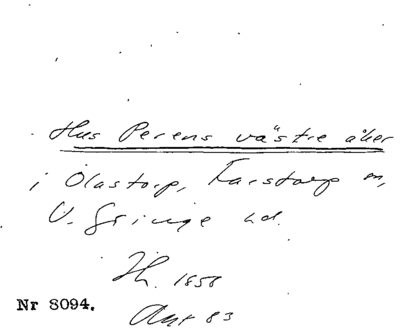 Hus Perens västre åker
i Olastorp, Farstorp sn,
V. Göinge hd.
Jh. 1858
Akt 83
Nr 8094.